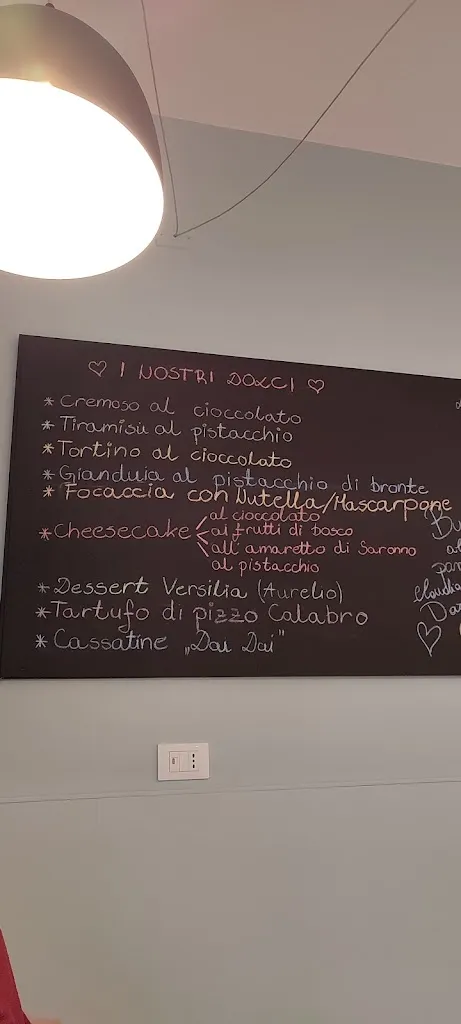 ♡ I NOSTRI DOLCI ♡
* Cremoso al cioccolato
* Tiramisù al pistacchio
* Tortino al cioccolato
* Gianduia al pistacchio di bronte
* Focaccia con Nutella/Mascarpone
* Cheesecake al cioccolato
ai frutti di bosco
all'amaretto di Saronno
al pistacchio
* Dessert Versilia (Aurelio)
* Tartufo di pizzo Calabro
* Cassatine „Dai Dai"
Claudia